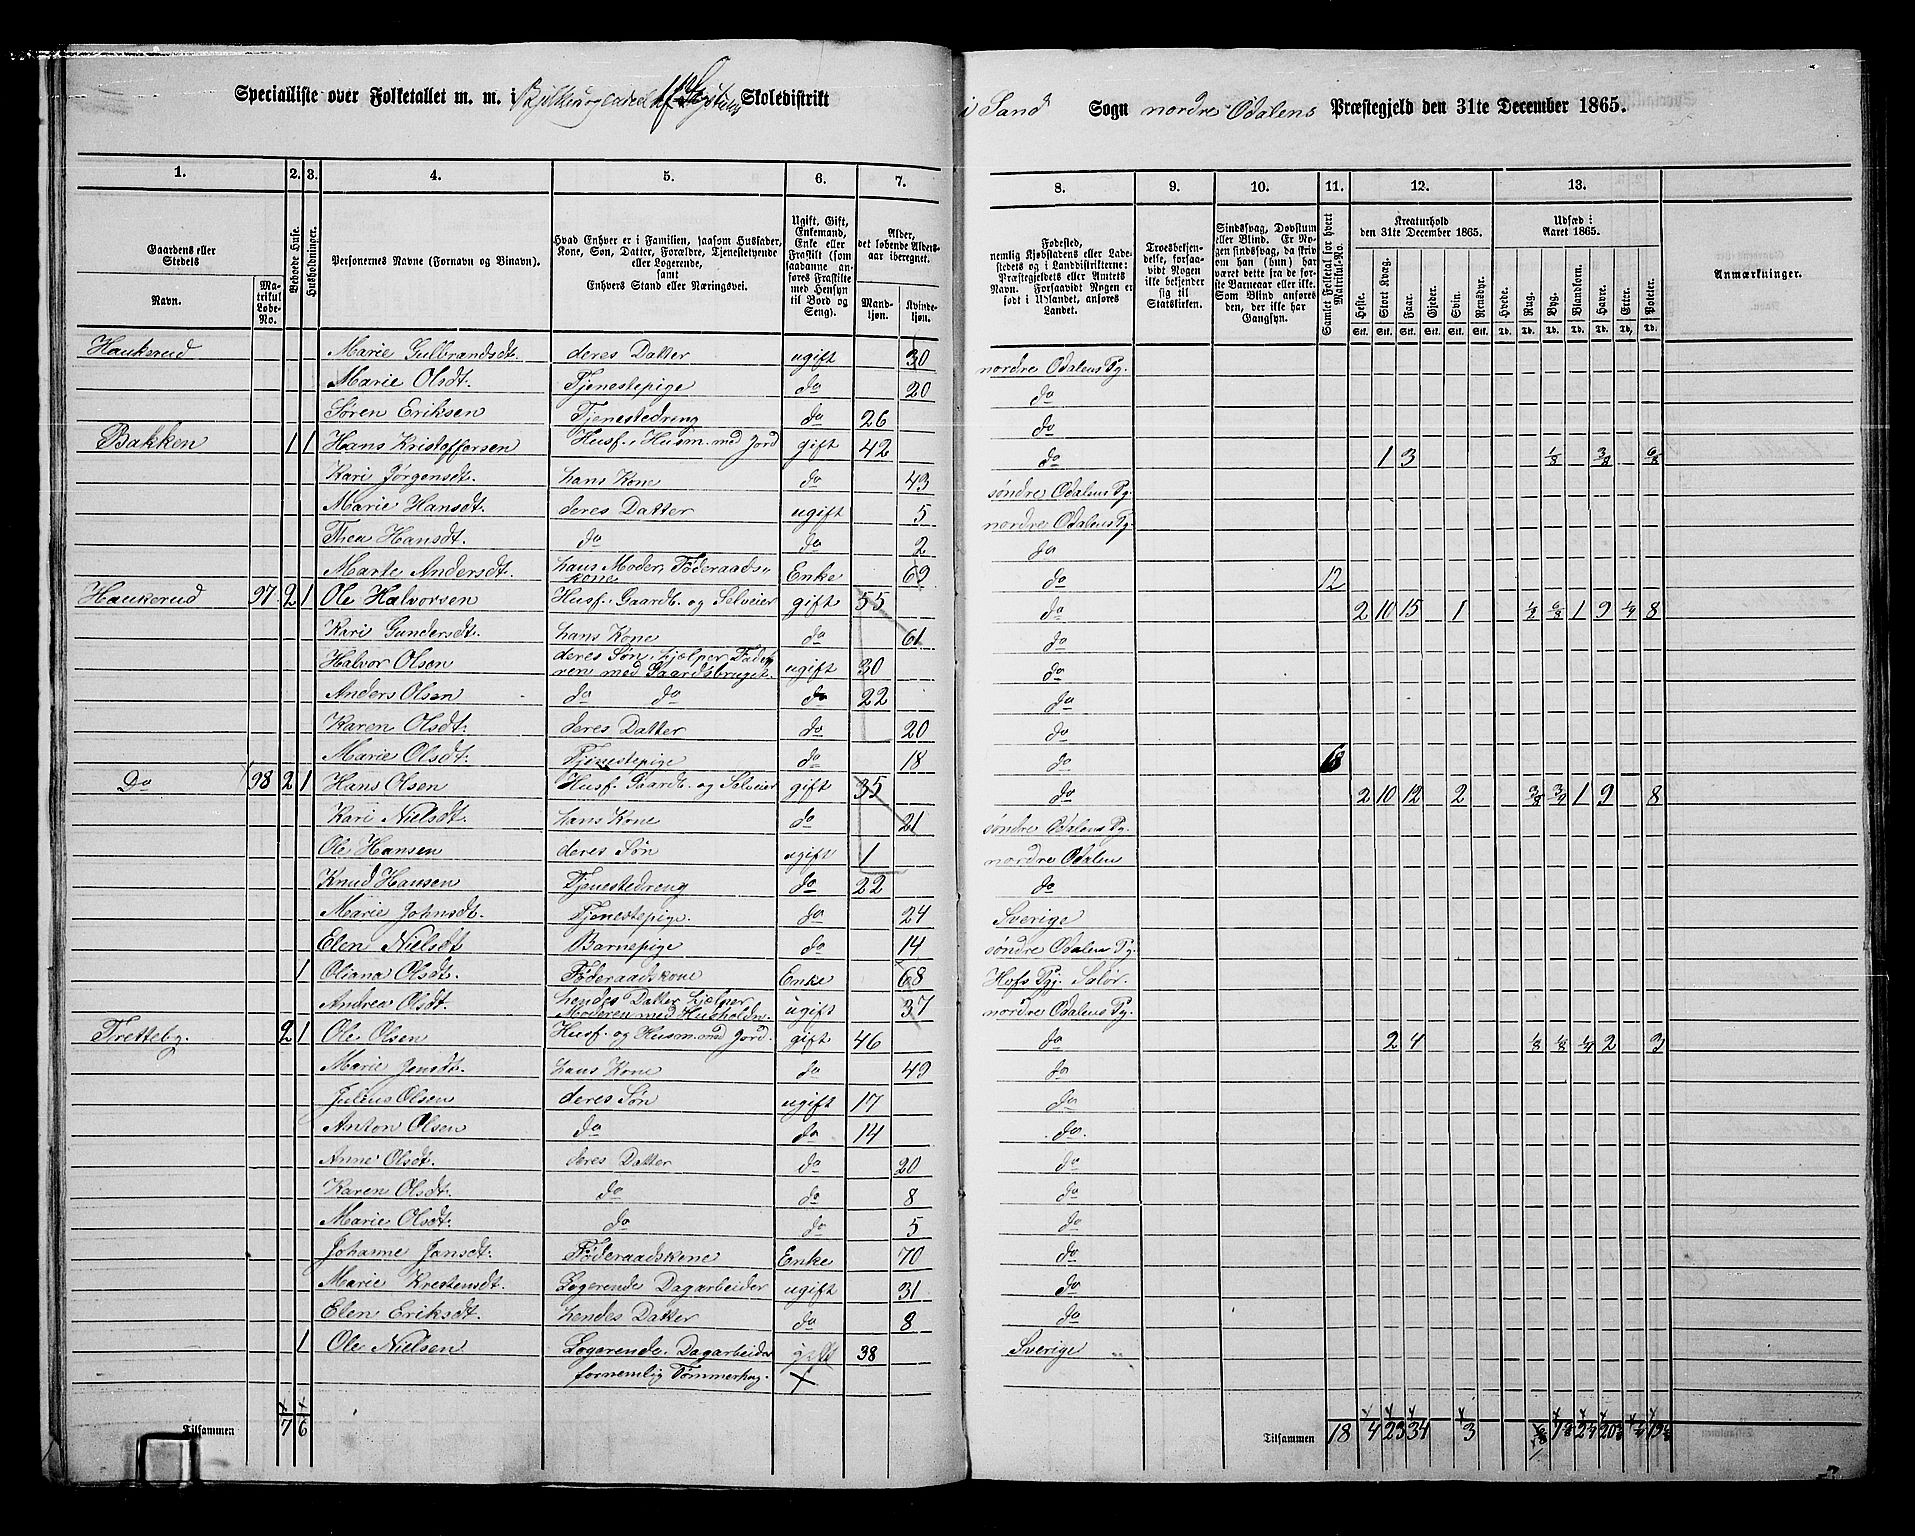 Specialliste over Folketallet m. m. i Skoledistrikt i Sand Sogn nordre Odalens Præstegjeld den 31te December 1865.
1. 2. 3. 4. 5. 6. 7. 8. 9. 10. 11. 12. 13.
Gaardens eller Stedets Navn. Matrikul Løbe-No. Beboede Huse. Husholdninger. Personernes Navne (Fornavn og Binavn). Hvad Enhver er i Familien, saasom Husfader, Kone, Søn, Datter, Forældre, Tjenestetyende eller Logerende, samt Enhvers Stand eller Næringsvei. Ugift, Gift, Enkemand, Enke eller Fraskilt (som saadanne anføres Fraskilte med Hensyn til Bord og Seng). Alder, det løbende Aldersaar iberegnet. Mandkjøn. Kvindekjøn. Fødested, nemlig Kjøbstadens eller Ladestedets og i Landdistrikterne: Præstegjeldets eller Amtets Navn. Forsaavidt Nogen er født i Udlandet, anføres Landet. Troesbekjendelse, forsaavidt Nogen ikke bekjender sig til Statskirken. Sindssvag, Døvstum eller Blind. Er Nogen sindssvag, da skriv om han (hun) har været dette fra de første Barneaar eller ikke. Som Blind anføres den, der ikke har Gangsyn. Samlet Folketal for hvert Matrikul-No. Kreaturhold den 31te December 1865. Udsæd i Aaret 1865. Anmærkninger.
Heste. Stort Kvæg. Faar. Gjeder. Svin. Rensdyr. Hvede. Rug. Byg. Blandkorn. Havre. Erter. Poteter.
Stk. Stk. Stk. Stk. Stk. Stk. Td. Td. Td. Td. Td. Td. Td.
Haukerud Marie Gulbrandsdt. deres Datter ugift 30 nordre Odalens Pg.
Marie Olsdt. Tjenestepige do 20 do
Søren Eriksen Tjenestedreng do 26 do
Bakken 1 1 Hans Kristoffersen Husf. Husm. med Jord gift 42 do 1 3 1/8 3/8 6/8
Kari Jørgensdt. hans Kone do 43 søndre Odalens Pg.
Marie Hansdt. deres Datter ugift 5 nordre Odalens Pg.
Thea Hansdt. do do 2 do
Marte Andersdt. hans Moder, Føderaads-kone Enke 69 do 12
Haukerud 97 2 1 Ole Halvorsen Husf. Gaardb. og Selveier gift 55 do 2 10 15 1 1/8 6/8 1 9 1/4 8
Kari Gundersdt. hans Kone do 61 do
Halvor Olsen deres Søn, hjelper Faderen med Gaardsbruget ugift 30 do
Anders Olsen do do do 22 do
Karen Olsdt. deres Datter do 20 do
Marie Olsdt. Tjenestepige do 18 do
Do 98 2 1 Hans Olsen Husf. Gaardb. og Selveier gift 35 do 2 10 12 2 3/8 3/4 1 9 8
Kari Nielsdt. hans Kone do 21 søndre Odalens Pg.
Ole Hansen deres Søn ugift 1 nordre Odalen
Knud Hansen Tjenestedreng do 22 do
Marie Johnsdt. Tjenestepige. do 24 Sverige
Elen Nielsdt Barnepige do 14 søndre Odalens Pg.
1 Oliana Olsdt. Føderaadskone Enke 68 Hofs Pgj. Solør.
Andrea Olsdt. hendes Datter hjelper Moderen med Husholdn. ugift 37 nordre Odalens Pg.
Tretteby. 2 1 Ole Olsen Husf. og Husm. med Jord. gift 46 do 2 4 1/8 1/8 1/4 2 3
Marie Jensdt. hans Kone do 49 do
Julius Olsen deres Søn ugift 17 do
Anton Olsen do do 14 do.
Anne Olsdt. deres Datter do 20 do
Karen Olsdt. do do 8 do
Marie Olsdt. do do 5 do
Johanne Jansdt. Føderaadskone Enke 70 do
Marie Krestensdt. Logerende Dagarbeider ugift 31 do
Elen Eriksdt. hendes Datter do 8 do
1 Ole Nielsen Logerende. Dagarbeider gift 38 Sverige
fornemlig Tømmerhug.
Tilsammen 7 6 Tilsammen 18 4 23 34 3